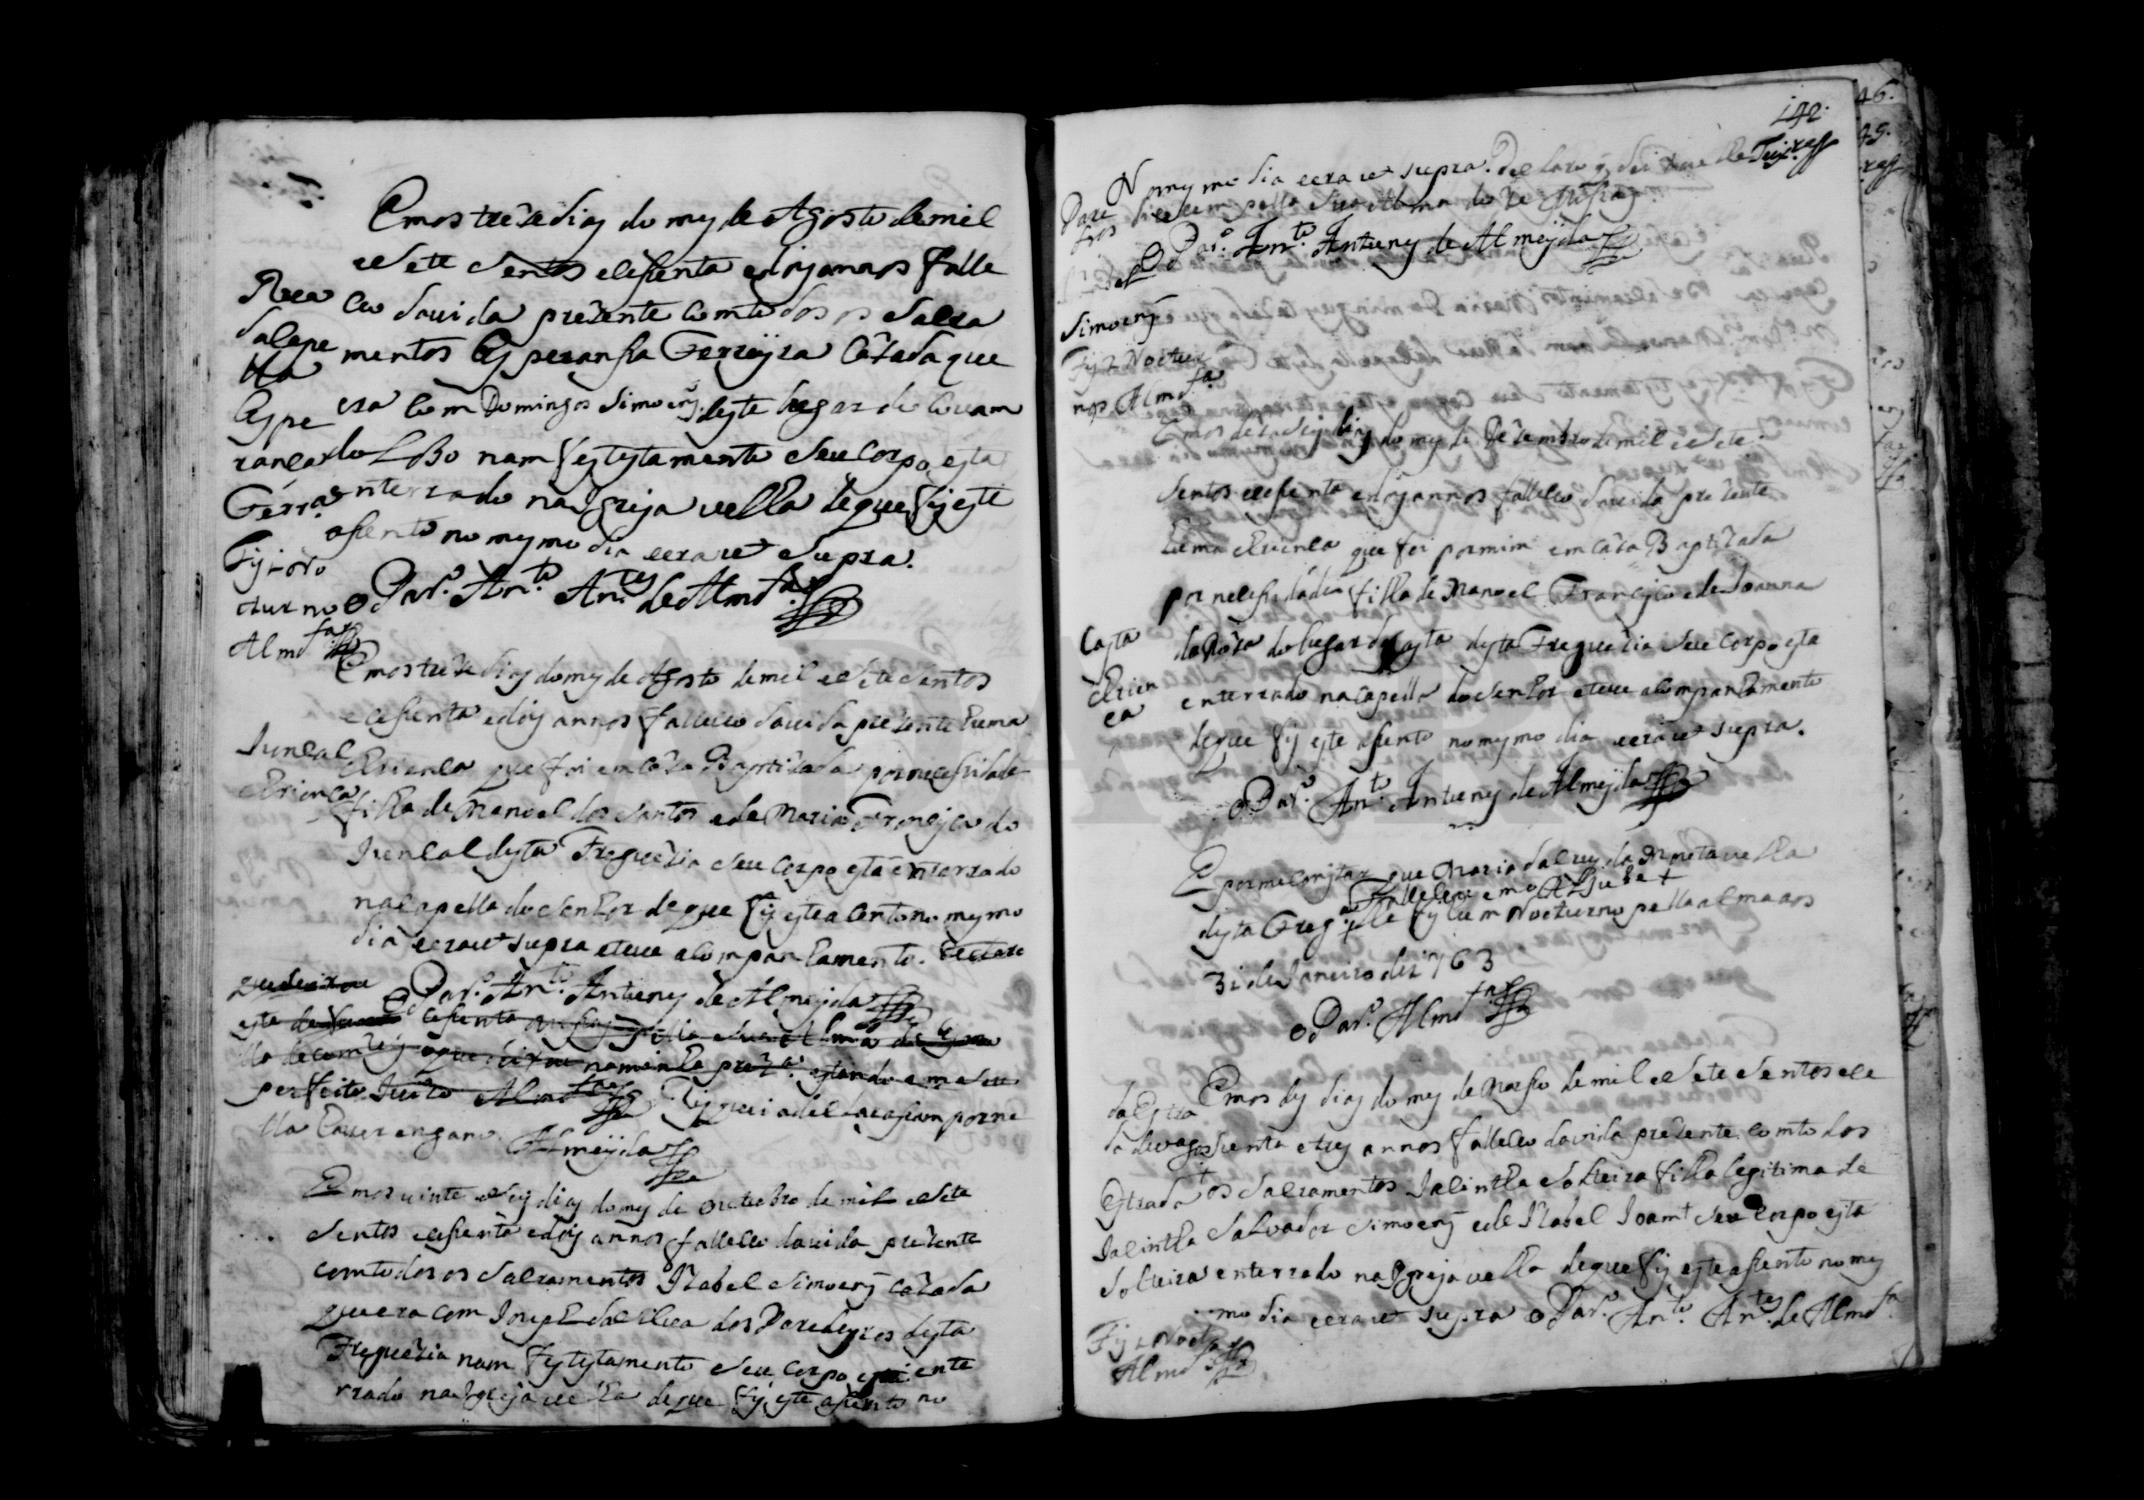 Emos treze dias do mes de Agosto de mil
e sete sentos e sesenta e dois annos falle
ceo da vida prezente com todos os Sacra
mentos Esperansa Ferreyra Cazada que
era com Domingos Simoens deste lugar de Covam
do Lobo nam fes testamento seu corpo esta
enterrado na Igreja velha de que fis este
asento no mesmo dia e era ut supra.
o Par.º An.to An.es de Almd.a
Rua
da Cape
lla
Espe
ranca
Ferr.a
Fis 1 o no
cturno
Almd.a
Emos treze dias do mes de Agosto de mil e sete sentos
e sesenta e dois annos falleceo da vida prezente huma
crienca que foi em caza Baptizada por necessidade
filha de Manoel dos Santos e de Maria Francisca do
Juncal desta Freguezia seu corpo esta enterrado
na capella do Senhor de que fis este acento no mesmo
dia e era ut supra e teve acompanhamento. Declaro
Juncal
crienca
que deixou
o Par.º An.to Antunes de Almeyda
esta sesenta missas pella sua Alma
perfeito Juizo Almd.a
lla haver engano. Almeyda
Emos vinte e seis dias do mes de Outubro de mil e sete
sentos e sesenta e dois annos falleceo da vida prezente
com todos os Sacramentos Izabel Simoens cazada
que era com Joseph da Silva dos Paredeyros desta
Freguezia nam fes testamento seu corpo esta ente
rrado na Igreja velha de que fis este asento no
142.
No mesmo dia e era ut supra. Declaro q. deixou
dicesem pella sua Alma
o Par.º An.to Antunes de Almeyda
Pare
Simoens
Fis 2 Noctur
nos Almd.a
Emos dezaseis dias do mes de Dezembro de mil e sete
sentos e sesenta e dois annos falleceo da vida prezente
huma crienca que foi por mim em caza Baptizada
por necessidade filha de Manoel Francisco e de Joanna
da Roza do lugar da Costa desta Freguezia seu corpo esta
enterrado na capella do Senhor e teve acompanhamento
de que fis este asento no mesmo dia e era ut supra.
o Par.º An.to Antunes de Almeyda
Costa
crien
ca
E por me constar que Maria da Cruz da Moita velha
falleceu em o Aljube +
desta Freg.a lhe fis hum Nocturno pella alma aos
31 de Janeiro de 1763
o Par.º Almd.a
Emos des dias do mes de Marso de mil e sete sentos e se
senta e tres annos falleceo da vida prezente com todos
os Sacramentos Jacintha solteira filha legitima de
Salvador Simoens e de Izabel Joam seu corpo esta
enterrado na Igreja velha de que fis este asento no mes
mo dia e era ut supra o Par.º An.to An.es de Almd.a
da Estra
Estrada
Jacintha
solteira
Fis 1 Noct.
Almd.a